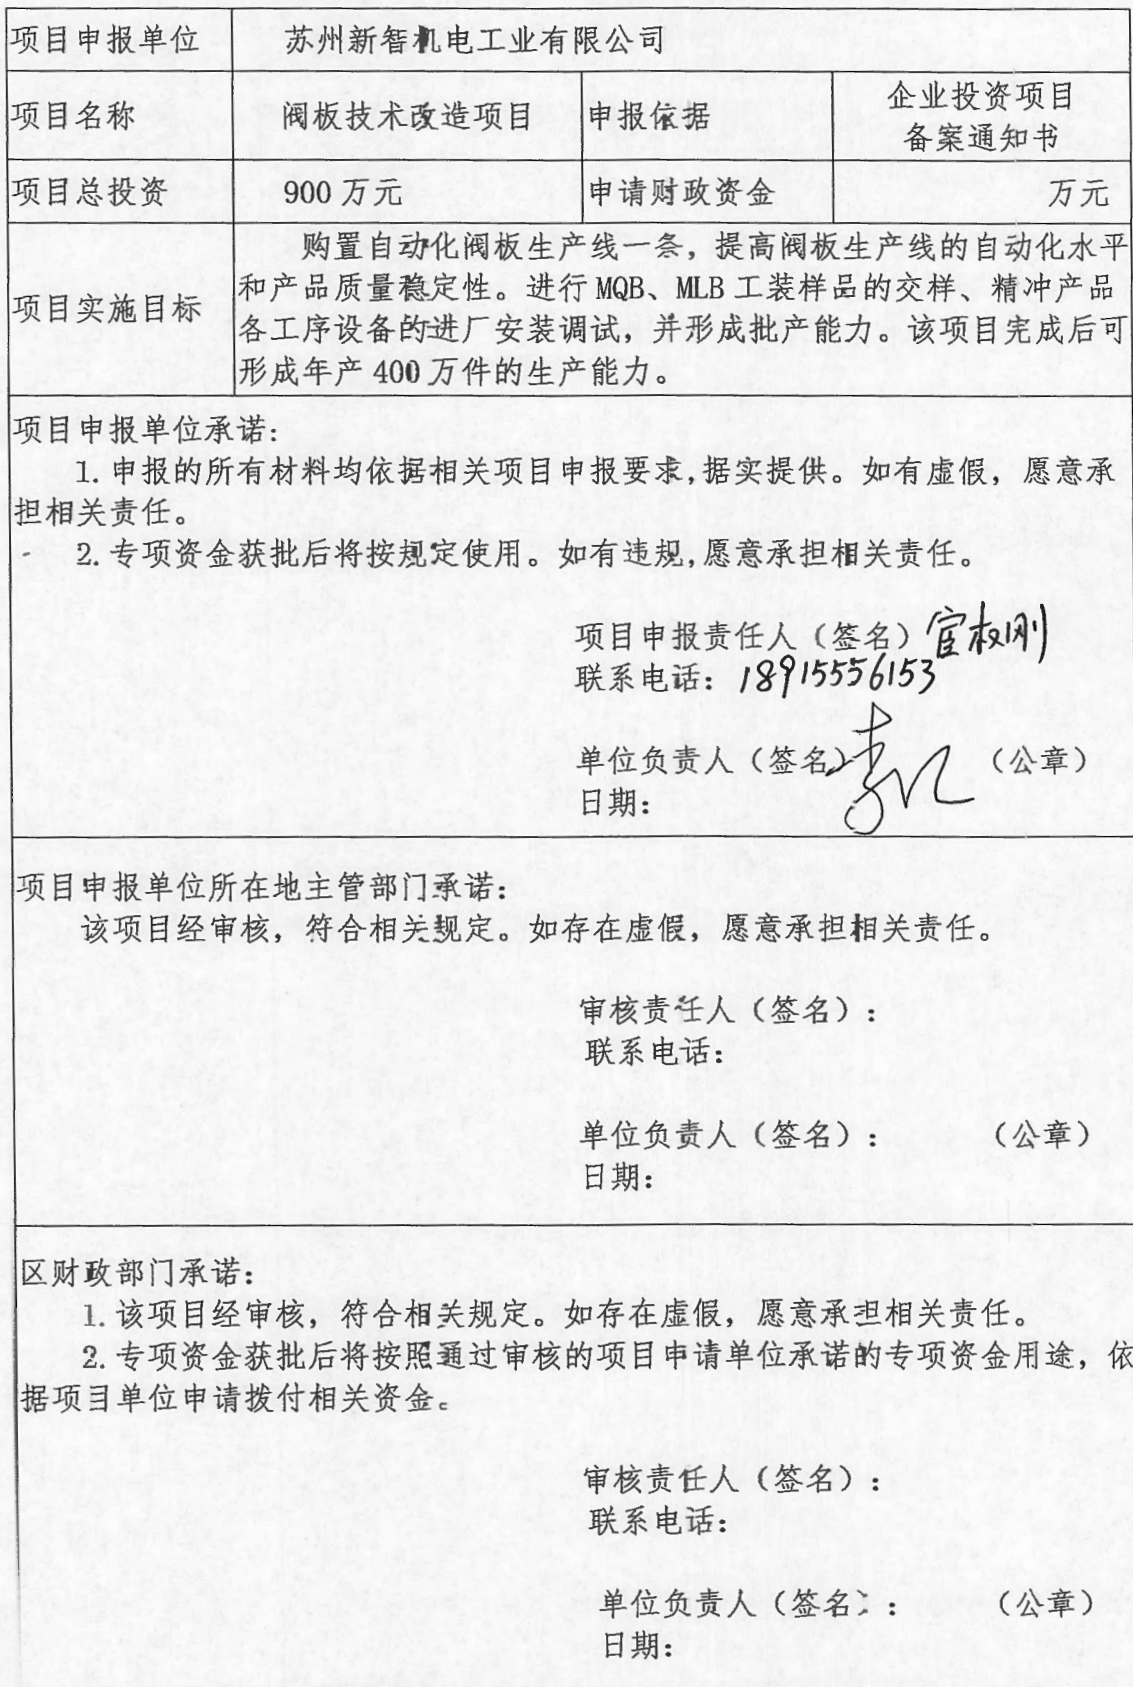 项目申报单位 苏州新智机电工业有限公司
项目名称 阀板技术改造项目 申报依据 企业投资项目
备案通知书
项目总投资 900万元 申请财政资金 万元
项目实施目标
购置自动化阀板生产线一条，提高阀板生产线的自动化水平
和产品质量稳定性。进行MQB、MLB工装样品的交样、精冲产品
各工序设备的进厂安装调试，并形成批产能力。该项目完成后可
形成年产400万件的生产能力。
项目申报单位承诺：
1.申报的所有材料均依据相关项目申报要求,据实提供。如有虚假，愿意承
担相关责任。
2.专项资金获批后将按规定使用。如有违规,愿意承担相关责任。
项目申报责任人（签名）
联系电话：18915556153
单位负责人（签名） （公章）
日期：
项目申报单位所在地主管部门承诺：
该项目经审核，符合相关规定。如存在虚假，愿意承担相关责任。
审核责任人（签名）：
联系电话：
单位负责人（签名）： （公章）
日期：
区财政部门承诺：
1.该项目经审核，符合相关规定。如存在虚假，愿意承担相关责任。
2.专项资金获批后将按照通过审核的项目申请单位承诺的专项资金用途，依
据项目单位申请拨付相关资金。
审核责任人（签名）：
联系电话：
单位负责人（签名）： （公章）
日期：